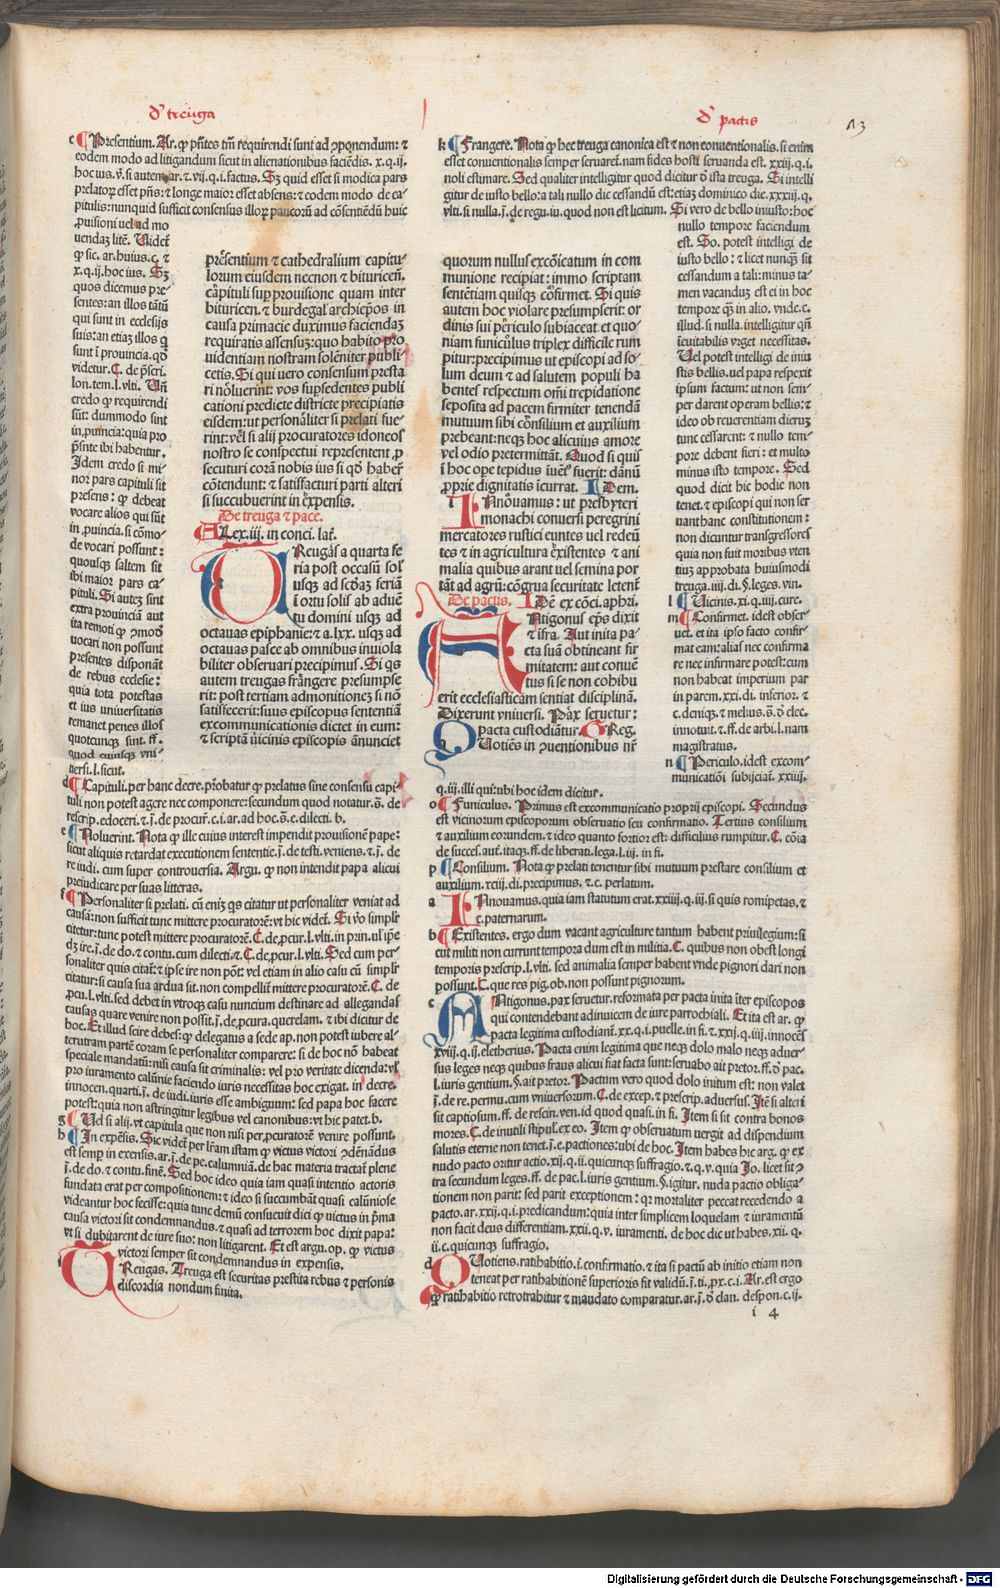 d' treuga
d' pactis
13
presentium et cathedralium capitu-
lorum eiusdem necnon et bituricen̄.
capituli sup prouisione quam inter
bituricen. et burdegal archiep̄os in
causa primacie duximus faciendaꝫ
requiratis assensuꝫ: quo habito pro
uidentiam nostram solēniter publi-
cetis. Si qui vero consensum presta
ri nōluerint: vos supsedentes publi
cationi predicte districte precipiatis
eisdem: ut personāliter si prelati fue-
rint: vel si alij procuratores idoneos
nostro se conspectui representent ꝓ
secuturi corā nobis ius si qḋ haber̄
cōtendunt: et satisfacturi parti alteri
si succubuerint in expensis.
De treuga et pace.
Alex. iij. in conci. lat̄.
TReugas a quarta fe
ria post occasū sol'
usqꝫ ad scḋaꝫ feriā
ī ortu solis ab aduē
tu domini usqꝫ ad
octauas epiphanie: et a. lxx. usqꝫ ad
octauas pasce ab omnibus inuiola
biliter obseruari precipimus. Si qs
autem treugas frāngere presumpse
rit: post tertiam admonitioneꝫ si nō
satisfecerit: suus episcopus sententiā
excommunicationis dictet in eum:
et scriptā uicinis episcopis anunciet
quorum nullus excōicatum in com
munione recipiat: immo scriptam
sentētiam quisqꝫ cōfirmet. Si quis
autem hoc violare presumpserit: or
dinis sui periculo subiaceat et quo-
niam funiculus triplex difficile rum
pitur: precipimus ut episcopi ad so-
lum deum et ad salutem populi ha
bentes respectum om̄i trepidatione
seposita ad pacem firmiter tenendā
mutuum sibi cōnsilium et auxilium
prebeant: neqꝫ hoc alicuius amore
vel odio pretermittāt. Quod si quis
ī hoc ope tepidus iuēt' fuerit: dānū
ꝓprie dignitatis icurrat. IDem.
INnouamus: ut presbyteri
monachi conuersi peregrini
mercatores rustici euntes uel redeū
tes et in agricultura existentes et ani
malia quibus arant uel semina por
tāt ad agrū: cōgrua securitate letent̄
De pactis. IDē ex cōci. aphri.
ANtigonus ep̄s dixit
et ifra. Aut inita pa-
cta suā obtineant fir
mitatem: aut conuē
tus si se non cohibu
erit ecclesiasticam sentiat disciplinā.
Dixerunt vniuersi. Pax seruetur:
pacta custodiātur. Greg.
QUotiēs in ↄuentionibus nr̄
k Frangere. Nota ꝙ hec treuga canonica est et non conuentionalis. si enim
esset conuentionalis semper seruaret. nam fides hosti seruanda est. xxiij. q. i.
noli estimare. Sed qualiter intelligitur quod dicitur ō ista treuga. Si intelli
gitur de iusto bello: a tali nullo die cessandū est: etiaꝫ dominico die. xxxiij. q.
vlti. si nulla. j. de regu. iu. quod non est licitum. Si vero de bello iniusto: hoc
nullo tempore faciendum
est. So. potest intelligi de
iusto bello: et licet nunqꝫ sit
cessandum a tali: minus ta-
men vacanduꝫ est ei in hoc
tempore qꝫ in alio. vnde. c.
illud. si nulla. intelligitur qn̄
ieuitabilis vrget necessitas.
Vel potest intelligi de iniu
stis bellis. uel papa respexit
ipsum factum: ut non sem-
per darent operam bellis: et
ideo ob reuerentiam dieruꝫ
tunc cessarent: et nullo tem-
pore debent fieri: et multo
minus isto tempore. Sed
quod dicit hic hodie non
tenet. et episcopi qui non ser
uant hanc constitutionem:
non dicuntur transgressores
quia non fuit moribus vten
tiuꝫ approbata huiusmodi
treuga. iiij. di. §. leges. vin.
l Uicinis. xi. q. iiij. cure.
m Confirmet. idest obser-
uet. et ita ipso facto confir-
mat eam: alias nec confirma
re nec infirmare potest: cum
non habeat imperium par
in parem. xxi. di. inferior. et
c. deniqꝫ. et melius. s. ō elec.
innotuit. et. ff. de arbi. l. nam
magistratus.
n Periculo. idest excom-
municatiōi subijciaī. xxiij.
q. iij. illi qui: ubi hoc idem dicitur.
o Funiculus. Primus est excommunicatio proprij episcopi. Secundus
est vicinorum episcoporum obseruatio seu confirmatio. Tertius consilium
et auxilium eorundem. et ideo quanto fortior est: difficilius rumpitur. C. cōia
de succes. aut. itaqꝫ. ff. de liberati. lega. l. iij. in fi.
p Consilium. Nota ꝙ prelati tenentur sibi mutuum prestare consilium et
auxilium. xcij. di. precipimus. et. c. perlatum.
a INnouamus. quia iam statutum erat. xxiiij. q. iij. si quis romipetas. et
c. paternarum.
b Existentes. ergo dum vacant agriculture tantum habent priuilegium: si
cut militi non currunt tempora dum est in militia. C. quibus non obest longi
temporis prescrip. l. vlti. sed animalia semper habent vnde pignori dari non
possunt. C. que res pig. ob. non possunt pignorum.
c ANtigonus. pax seruetur. reformata per pacta inita īter episcopos
qui contendebant adinuicem de iure parrochiali. Et ita est ar. ꝙ
pacta legitima custodiant̄. xx. q. i. puelle. in fi. et. xxij. q. iiij. innocēs
xviij. q. ij. eletherius. Pacta enim legitima que neqꝫ dolo malo neqꝫ aduer-
sus leges neqꝫ quibus fraus alicui fiat facta sunt: seruabo ait pretor. ff. ō pac.
l. iuris gentium. §. ait pretor. Pactum vero quod dolo initum est: non valet
j. de re. permu. cum vniuersorum. C. de excep. et prescrip. aduersus. Itē si alteri
sit captiosum. ff. de rescin. ven. id quod quasi. in fi. Item si sit contra bonos
mores. C. de inutili stipul'. ex eo. Item ꝙ obseruatum uergit ad dispendium
salutis eterne non tenet. j. e. pactiones: ubi de hoc. Item habes hic arg. ꝙ ex
nudo pacto oritur actio. xij. q. ii. quicunqꝫ suffragio. et. q. v. quia Jo. licet sit ↄ
tra secundum leges. ff. de pac. l. iuris gentium. §. igitur. nuda pactio obliga-
tionem non parit: sed parit exceptionem: qr mortaliter peccat recedendo a
pacto. ar. xxij. q. i. predicandum: quia inter simplicem loquelam et iuramentū
non facit deus differentiam. xxij. q. v. iuramenti. de hoc dic ut habes. xij. q.
ii. c. quicunqꝫ suffragio.
d QUotiens. ratihabitio. i. confirmatio. et ita si pactū ab initio etiam non
teneat per ratihabitionē superioris fit validū. j. ti. ꝓx. c. i. Ar. est ergo
ꝙ ratihabitio retrotrahitur et mandato comparatur. ar. j. ō clan. despon. c. ij.
i 4
c Presentium. Ar. ꝙ pn̄tes tm̄ requirendi sunt ad ↄponendum: et
eodem modo ad litigandum sicut in alienationibus faciēdis. x. q. ij.
hoc ius. v̄. si autem. ar. et. vij. q. i. factus. Sꝫ quid esset si modica pars
prelatoꝝ esset pn̄s: et longe maior esset absens: et eodem modo de ca-
pitulis: nunquid sufficit consensus illoꝝ paucorū ad cōsentiēdū huic
ꝓuisioni uel ad mo
uendaꝫ litē. Uidet̄
ꝙ sic. ar. huius. c. et
x. q. ij. hoc ius. Sꝫ
quos dicemus pre-
sentes: an illos tātū
qui sunt in ecclesijs
suis: an etiaꝫ illos q
sunt ī prouincia. qḋ
videtur. C. de p̄scri.
lon. tem. l. vlti. Un̄
credo ꝙ requirendi
sūt: dummodo sint
in ꝓuincia: quia pro
p̄snte ibi habentur.
Idem credo si mi-
nor pars capituli sit
presens: ꝙ debeat
vocare alios qui sūt
in ꝓuincia. si cōmo-
de vocari possunt:
quousqꝫ saltem sit
ibi maior pars ca-
pituli. Si autēꝫ sint
extra prouinciā aut
ita remoti ꝙ ↄmoḋ
uocari non possunt
presentes disponāt
de rebus ecclesie:
quia tota potestas
et ius uniuersitatis
remanet penes illos
quotcunqꝫ sint. ff.
quod cuiusqꝫ vni-
uersi. l. sicut.
d Capituli. per hanc decre. probatur ꝙ prelatus sine consensu capi-
tuli non potest agere nec componere: secundum quod notatur. s. de
rescrip. edoceri. et. j. de procur̄. c. i. ar. ad hoc. s. c. dilecti. b.
e Noluerint. Nota ꝙ ille cuius interest impendit prouisionē pape:
sicut aliquis retardat executionem sententie. j. de testi. veniens. et. j. de
re iudi. cum super controuersia. Argu. ꝙ non intendit papa alicui
preiudicare per suas litteras.
f Personaliter si prelati. cū eniꝫ qs citatur ut personaliter veniat ad
causā: non sufficit tunc mittere procuratorē: vt hic videt̄. Si v̄o simplr̄
citetur: tunc potest mittere procuratorē. C. de ꝓcur. l. vlti. in prin. ul' ip̄e
dꝫ ire. j. de do. et contu. cum dilecti. et. C. de ꝓcur. l. vlti. Sed cum per-
sonaliter quis citat̄: et ip̄se ire non pōt: vel etiam in alio casu cū simplr̄
citatur: si causa sua ardua sit. non compellit̄ mittere procuratorē. C. de
ꝓcu. l. vlti. sed debet in vtroqꝫ casu nuncium destinare ad allegandas
causas quare venire non possit. j. de ꝓcura. querelam. et ibi dicitur de
hoc. Et illud scire debes: ꝙ delegatus a sede ap. non potest iubere al-
terutram partē coram se personaliter comparere: si de hoc nō habeat
speciale mandatū: nisi causa sit criminalis: vel pro veritate dicenda: vl'
pro iuramento calūnie faciendo iuris necessitas hoc exigat. in decre.
innocen. quarti. j. de iudi. iuris esse ambiguum: sed papa hoc facere
potest: quia non astringitur legibus vel canonibus: vt hic patet. b.
g Uel si alij. vt capitula que non nisi per ꝓcuratorē venire possunt.
h In expēsis. Sic videt̄ per lr̄am istam ꝙ victus victori ↄdēnādus
est semp in exensis. ar. j. de pe. calumniā. de hac materia tractat̄ plene
j. de do. et contu. finē. Sed hoc ideo quia iam quasi intentio actoris
fundata erat per compositionem: et ideo si succumbāt quasi calūniose
videantur hoc fecisse: quia tunc demū consueuit dici ꝙ victus in p̄ma
causa victori sit condemnandus. et quasi ad terrorem hoc dixit papa:
vt si dubitarent de iure suo: non litigarent. Et est argu. op. ꝙ victus
victori semper sit condemnandus in expensis.
TReugas. Treuga est securitas prestita rebus et personis
discordia nondum finita.
Digitalisierung gefördert durch die Deutsche Forschungsgemeinschaft - DFG